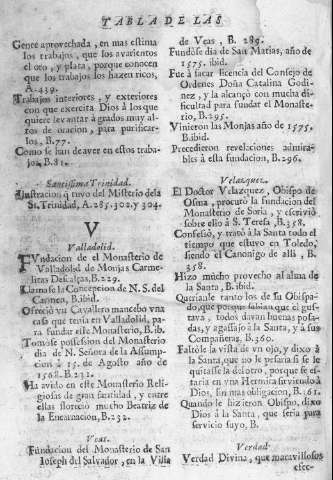 TABLA DE LAS
Gente aprovechada, en mas estima
los trabajos, que los avarientos
el oro, y plata, porque conocen
que los trabajos los hazen ricos,
A. 439.
Trabajos interiores, y exteriores
con que exercita Dios à los que
quiere levantar à grados muy al-
ros de oracion, para purificar-
los, B. 77.
Como se han de aver en estos traba-
jos, B. 81.
Santissima Trinidad.
Ilustracion q̃ tuvo del Misterio de la
SS. Trinidad, A. 285. 302. y 304.
V
Valladolid.
FVndacion de el Monasterio de
Valladolid de Monjas Carme-
litas Descalças, B. 229.
Llamose la Concepcion de N. S. del
Carmen, B. ibid.
Ofreciò vn Cavallero mancebo vna
casa que tenia en Valladolid, pa-
ra fundar este Monasterio, B. ib.
Tomose possession del Monasterio
dia de N. Señora de la Assump-
cion à 15. de Agosto año de
1568. B. 232.
Ha avido en este Monasterio Reli-
giosas de gran santidad, y entre
ellas floreciò mucho Beatriz de
la Encarnacion, B. 232.
Veas.
Fundacion del Monasterio de San
Ioseph del Salvador, en la Villa
de Veas, B. 289.
Fundòse dia de San Matias, año de
1575. ibid.
Fue à sacar licencia del Consejo de
Ordenes Doña Catalina Godi-
nez, y la alcançò con mucha di-
ficultad para fundar el Monaste-
rio, B. 295.
Vinieron las Monjas año de 1575.
B. ibid.
Precedieron revelaciones admira-
bles à esta fundacion, B. 296.
Velazquez.
El Doctor Velazquez, Obispo de
Osma, procurò la fundacion del
Monasterio de Soria, y escriviò
sobre ello à S. Teresa, B. 358.
Confessò, y tratò à la Santa todo el
tiempo que estuvo en Toledo,
siendo el Canonigo de allì, B.
358.
Hizo mucho provecho al alma de
la Santa, B. ibid.
Queriale tanto los de su Obispa-
do, que porque sabian que èl gus-
tava, todos davan buenas posa-
das, y agassajo à la Santa, y à sus
Compañeras, B. 360.
Faltòle la vista de vn ojo, y dixo à
la Santa, que no le pesaria si se le
quitasse la de otro, porque se es-
taria en vna Hermita sirviendo à
Dios, sin mas obligacion, B. 361.
Quando le hizieron Obispo, dixo
Dios à la Santa, que seria para
servicio suyo, B.
Verdad.
Verdad Divina, que maravillosos
efec-